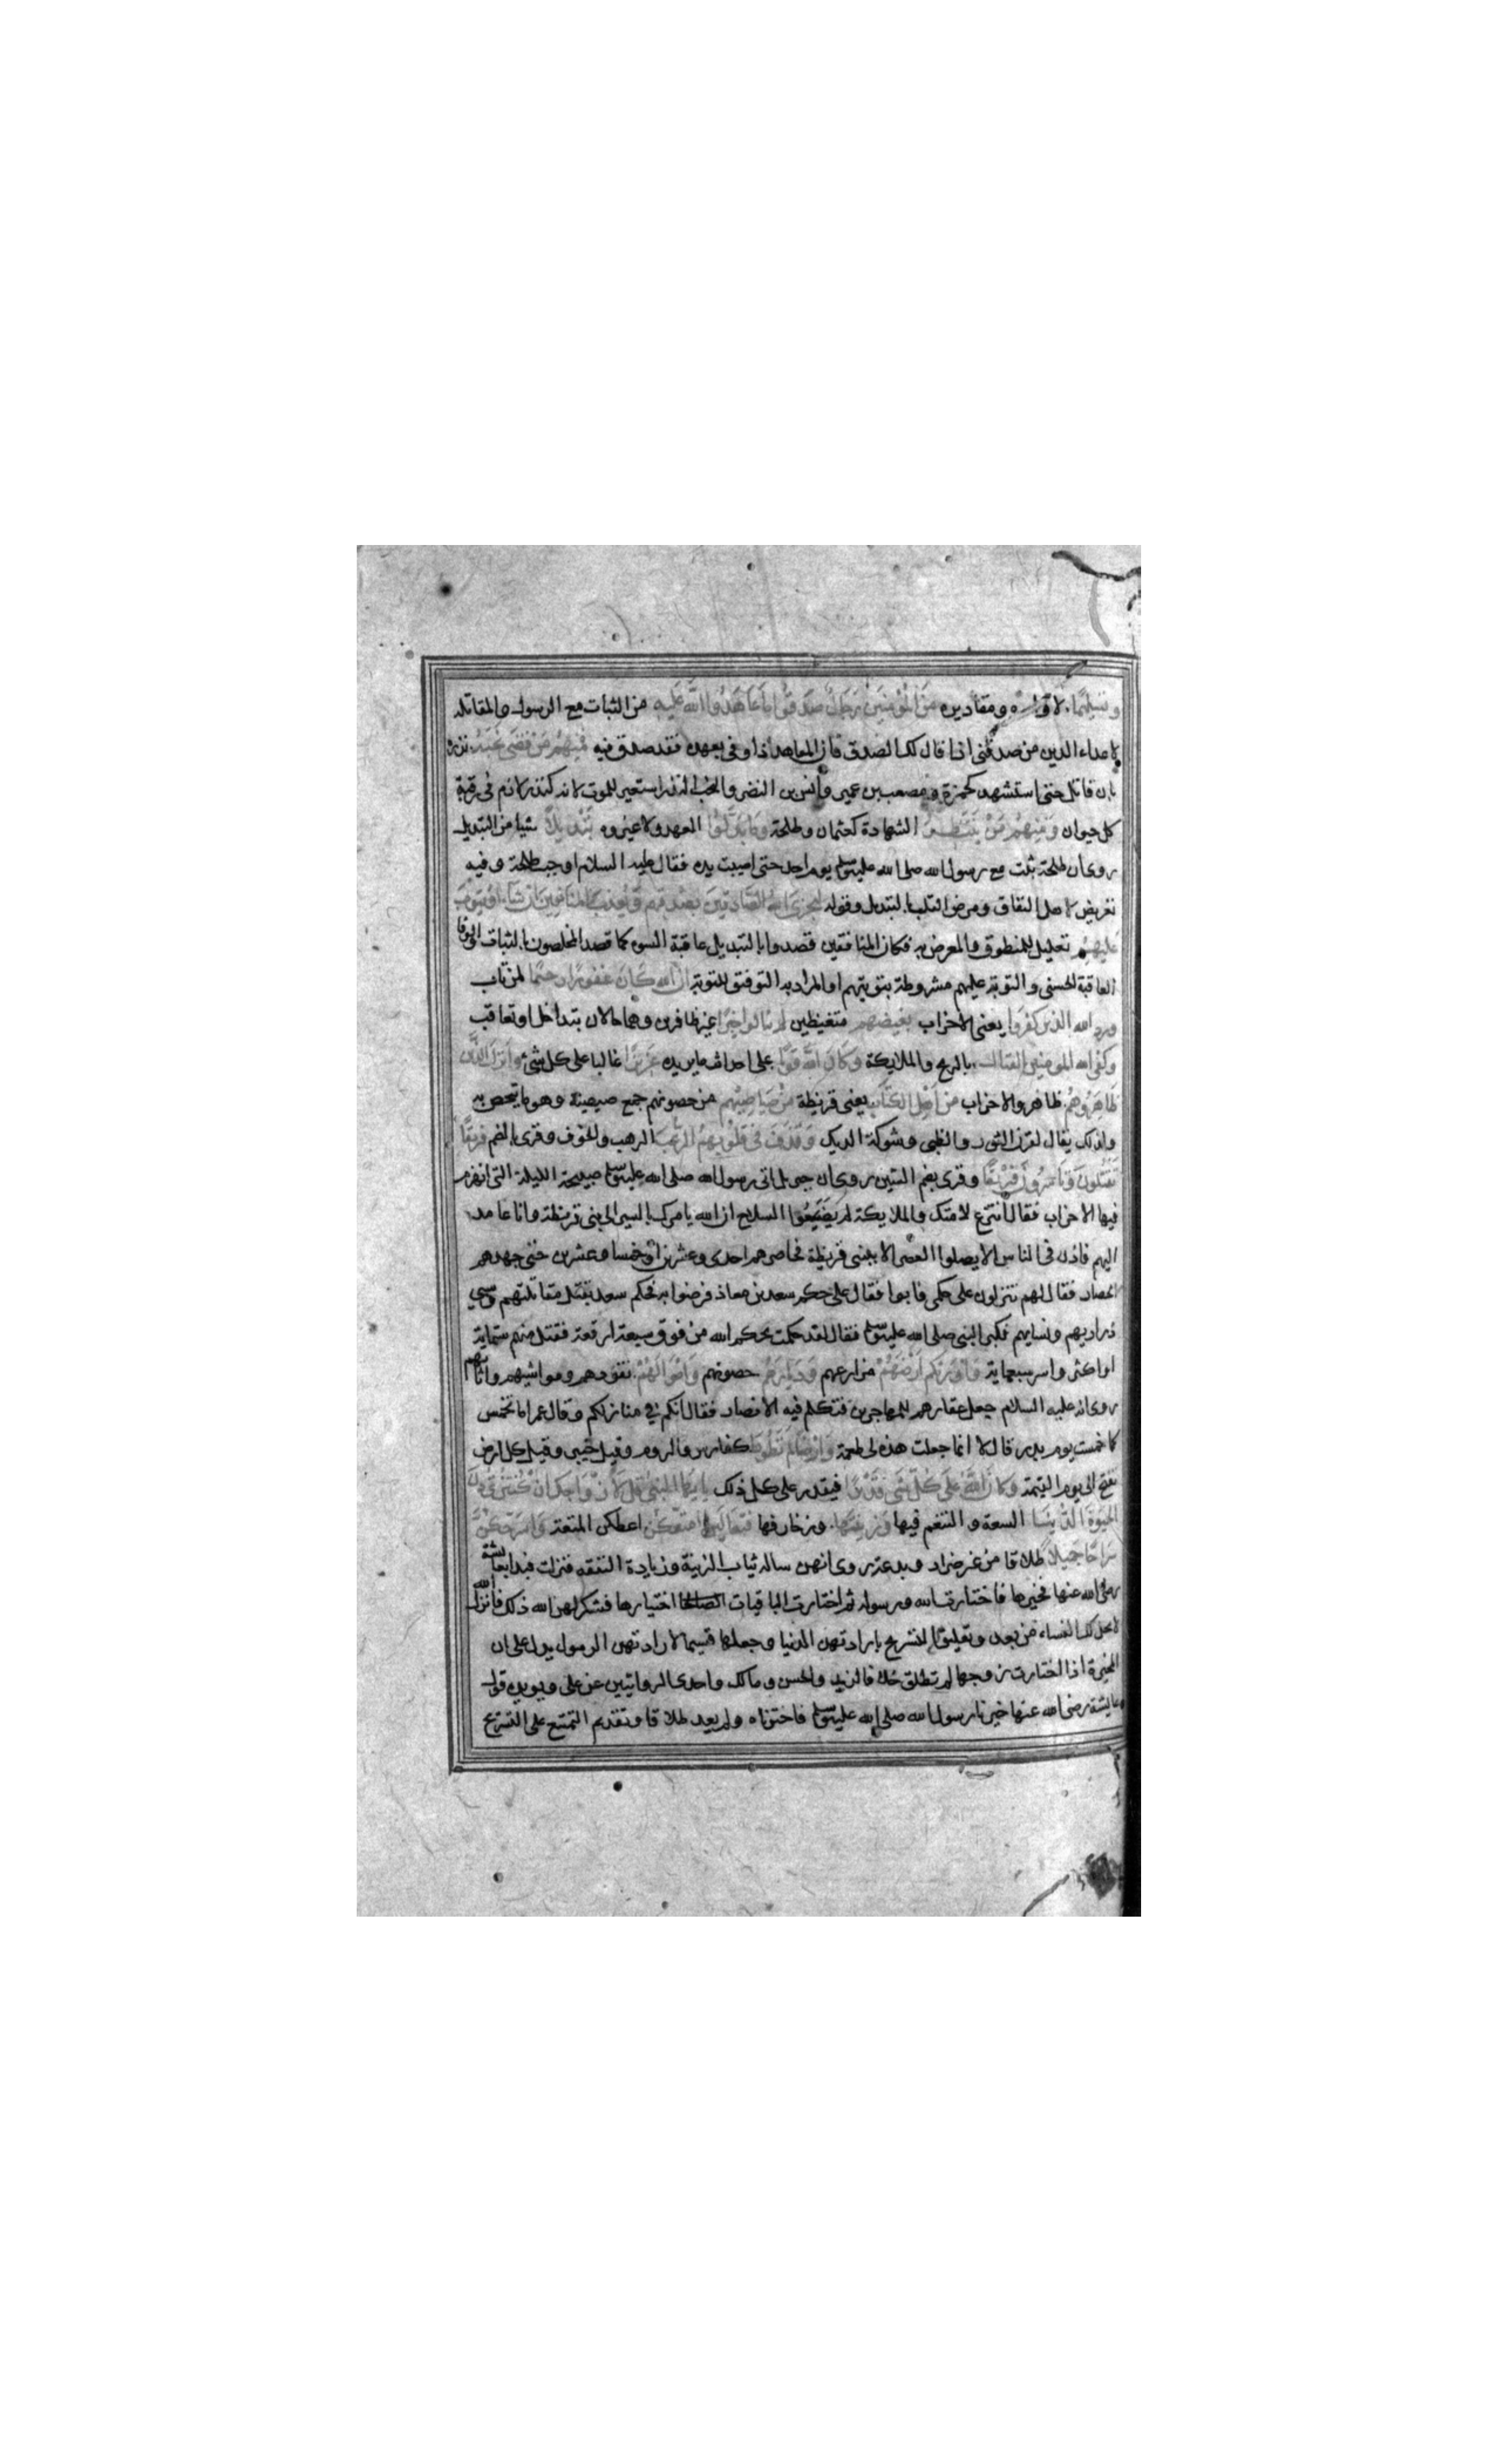 وتسليما لاوامره ومقاديره من المؤمنين رجال صدقوا ما عاهدوا الله عليه من الثبات مع الرسول والمقاتلة
لاعداء الدين من صدقنى اذا قال لك الصدق فان المعاهد اذا وفى بعهده فقد صدق فيه فمنهم من قضى نحبه نذره
بان قاتل حتى استشهد كحمزة ومصعب بن عمير وانس بن النضر والنحب النذر استعير للموت لانه كنذر لازم فى رقبة
كل حيوان ومنهم من ينتظر الشهادة كعثمان وطلحة وما بدلوا العهد ولا غيروه تبديلا شيا من التبديل
روى ان طلحة ثبت مع رسول الله صلى الله عليه وسلم يوم احد حتى اصيبت يده فقال عليه السلام اوجب طلحة وفيه
تعريض لاهل النفاق ومرض القلب بالتبديل وقوله ليجزى الله الصادقين بصدقهم ويعذب المنافقين ان شاء او يتوب
عليهم تعليل للمنطوق والمعرض به فكان المنافقين قصدوا بالتبديل عاقبة السوء كما قصد المخلصون بالثبات والوفا
العاقبة الحسنى والتوبة عليهم مشروطة بتوبتهم او المراد به التوفيق للتوبة ان الله كان غفورا رحيما لمن تاب
ورد الله الذين كفروا يعنى الاحزاب بغيضهم متغيظين لم ينالوا خيرا غير ظافرين وهما حالان بتداخل او تعاقب
وكفى الله المومنين القتال بالريح والملايكة وكان الله قويا على احداث ما يريده عزيزا غالبا على كل شئ وانزل الذين
ظاهروهم ظاهروا الاحزاب من اهل الكتاب يعنى قريظة من صياصيهم من حصونهم جمع صيصية وهو ما يتحصن به
ولذلك يقال لقرن الثور والظبى وشوكة الديك وقذف فى قلوبهم الرعب الرهب والخوف وقرى بالضم فريقا
تقتلون وتاسرون فريقا وقرى بضم السين روى ان جبريل اتى رسول الله صلى الله عليه وسلم صبيحة الليلة التى انهزم
فيها الاحزاب فقال اتنزع لامتك والملايكة لم يضعوا السلاح ان الله يامرك بالسير الى بنى قريظة وانا عامد
اليهم فاذن فى الناس الا يصلوا العصر الا ببنى قريظة فحاصرهم احدى وعشرين او خمسا وعشرين حتى جهدهم
الحصار فقال لهم تنزلون على حكمى فابوا فقال على حكم سعد بن معاذ فرضوا به فحكم سعد بقتل مقاتلتهم وسبي
ذراريهم ونسايهم فكبر النبى صلى الله عليه وسلم فقال لقد حكمت بحكم الله من فوق سبعة ارقعة فقتل منهم ستماية
او اكثر واسر سبعماية واورثكم ارضهم مزارعهم وديارهم حصونهم واموالهم نقودهم ومواشيهم واثاثهم
روى انه عليه السلام جعل عقارهم للمهاجرين فتكلم فيه الانصار فقال انكم في منازلكم وقال عمر اما تخمس
كما خمست يوم بدر قال لا انما جعلت هذه لى طعمة وارضا لم تطوها كفارس والروم وقيل خيبر وقيل كل ارض
تفتح الى يوم القيمة وكان الله على كل شى قديرا فيقدر على كل ذلك يا ايها النبى قل لازواجك ان كنتن تردن
الحيوة الدنيا السعة والتنعم فيها وزينتها وزخارفها فتعالين امتعكن اعطكن المتعة واسرحكن
سراحا جميلا طلاقا من غير ضرار وبدعة روى انهن سالنه ثياب الزينة وزيادة النفقه فنزلت فبدا بعايشة
رضى الله عنها فخيرها فاختارت الله ورسوله ثم اختارت الباقيات اختيارها فشكر لهن الله ذلك فانزل الله
لا يحل لك النساء من بعد وتعليق التسريح بارادتهن الدنيا وجعلها قسيما لارادتهن الرسول يدل على ان
المخيرة اذا اختارت زوجها لم تطلق خلافا لزيد والحسن ومالك واحدى الروايتين عن على ويويده قول
عايشة رضى الله عنها خيرنا رسول الله صلى الله عليه وسلم فاخترناه ولم يعد طلاقا وتقديم التمتيع على التسريح